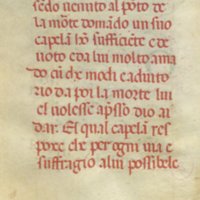 sēdo uenuto al pōto de
la mōte domādo un suo
capelā hō sufficiēte e de
uoto e da lui molto ama
do cū che modi e adiuto
rio da poi la morte lui
el uolesse apsso dio ai
dar. El qual capelā res
poxe che per ogni uia e
suffragio a lui possibele